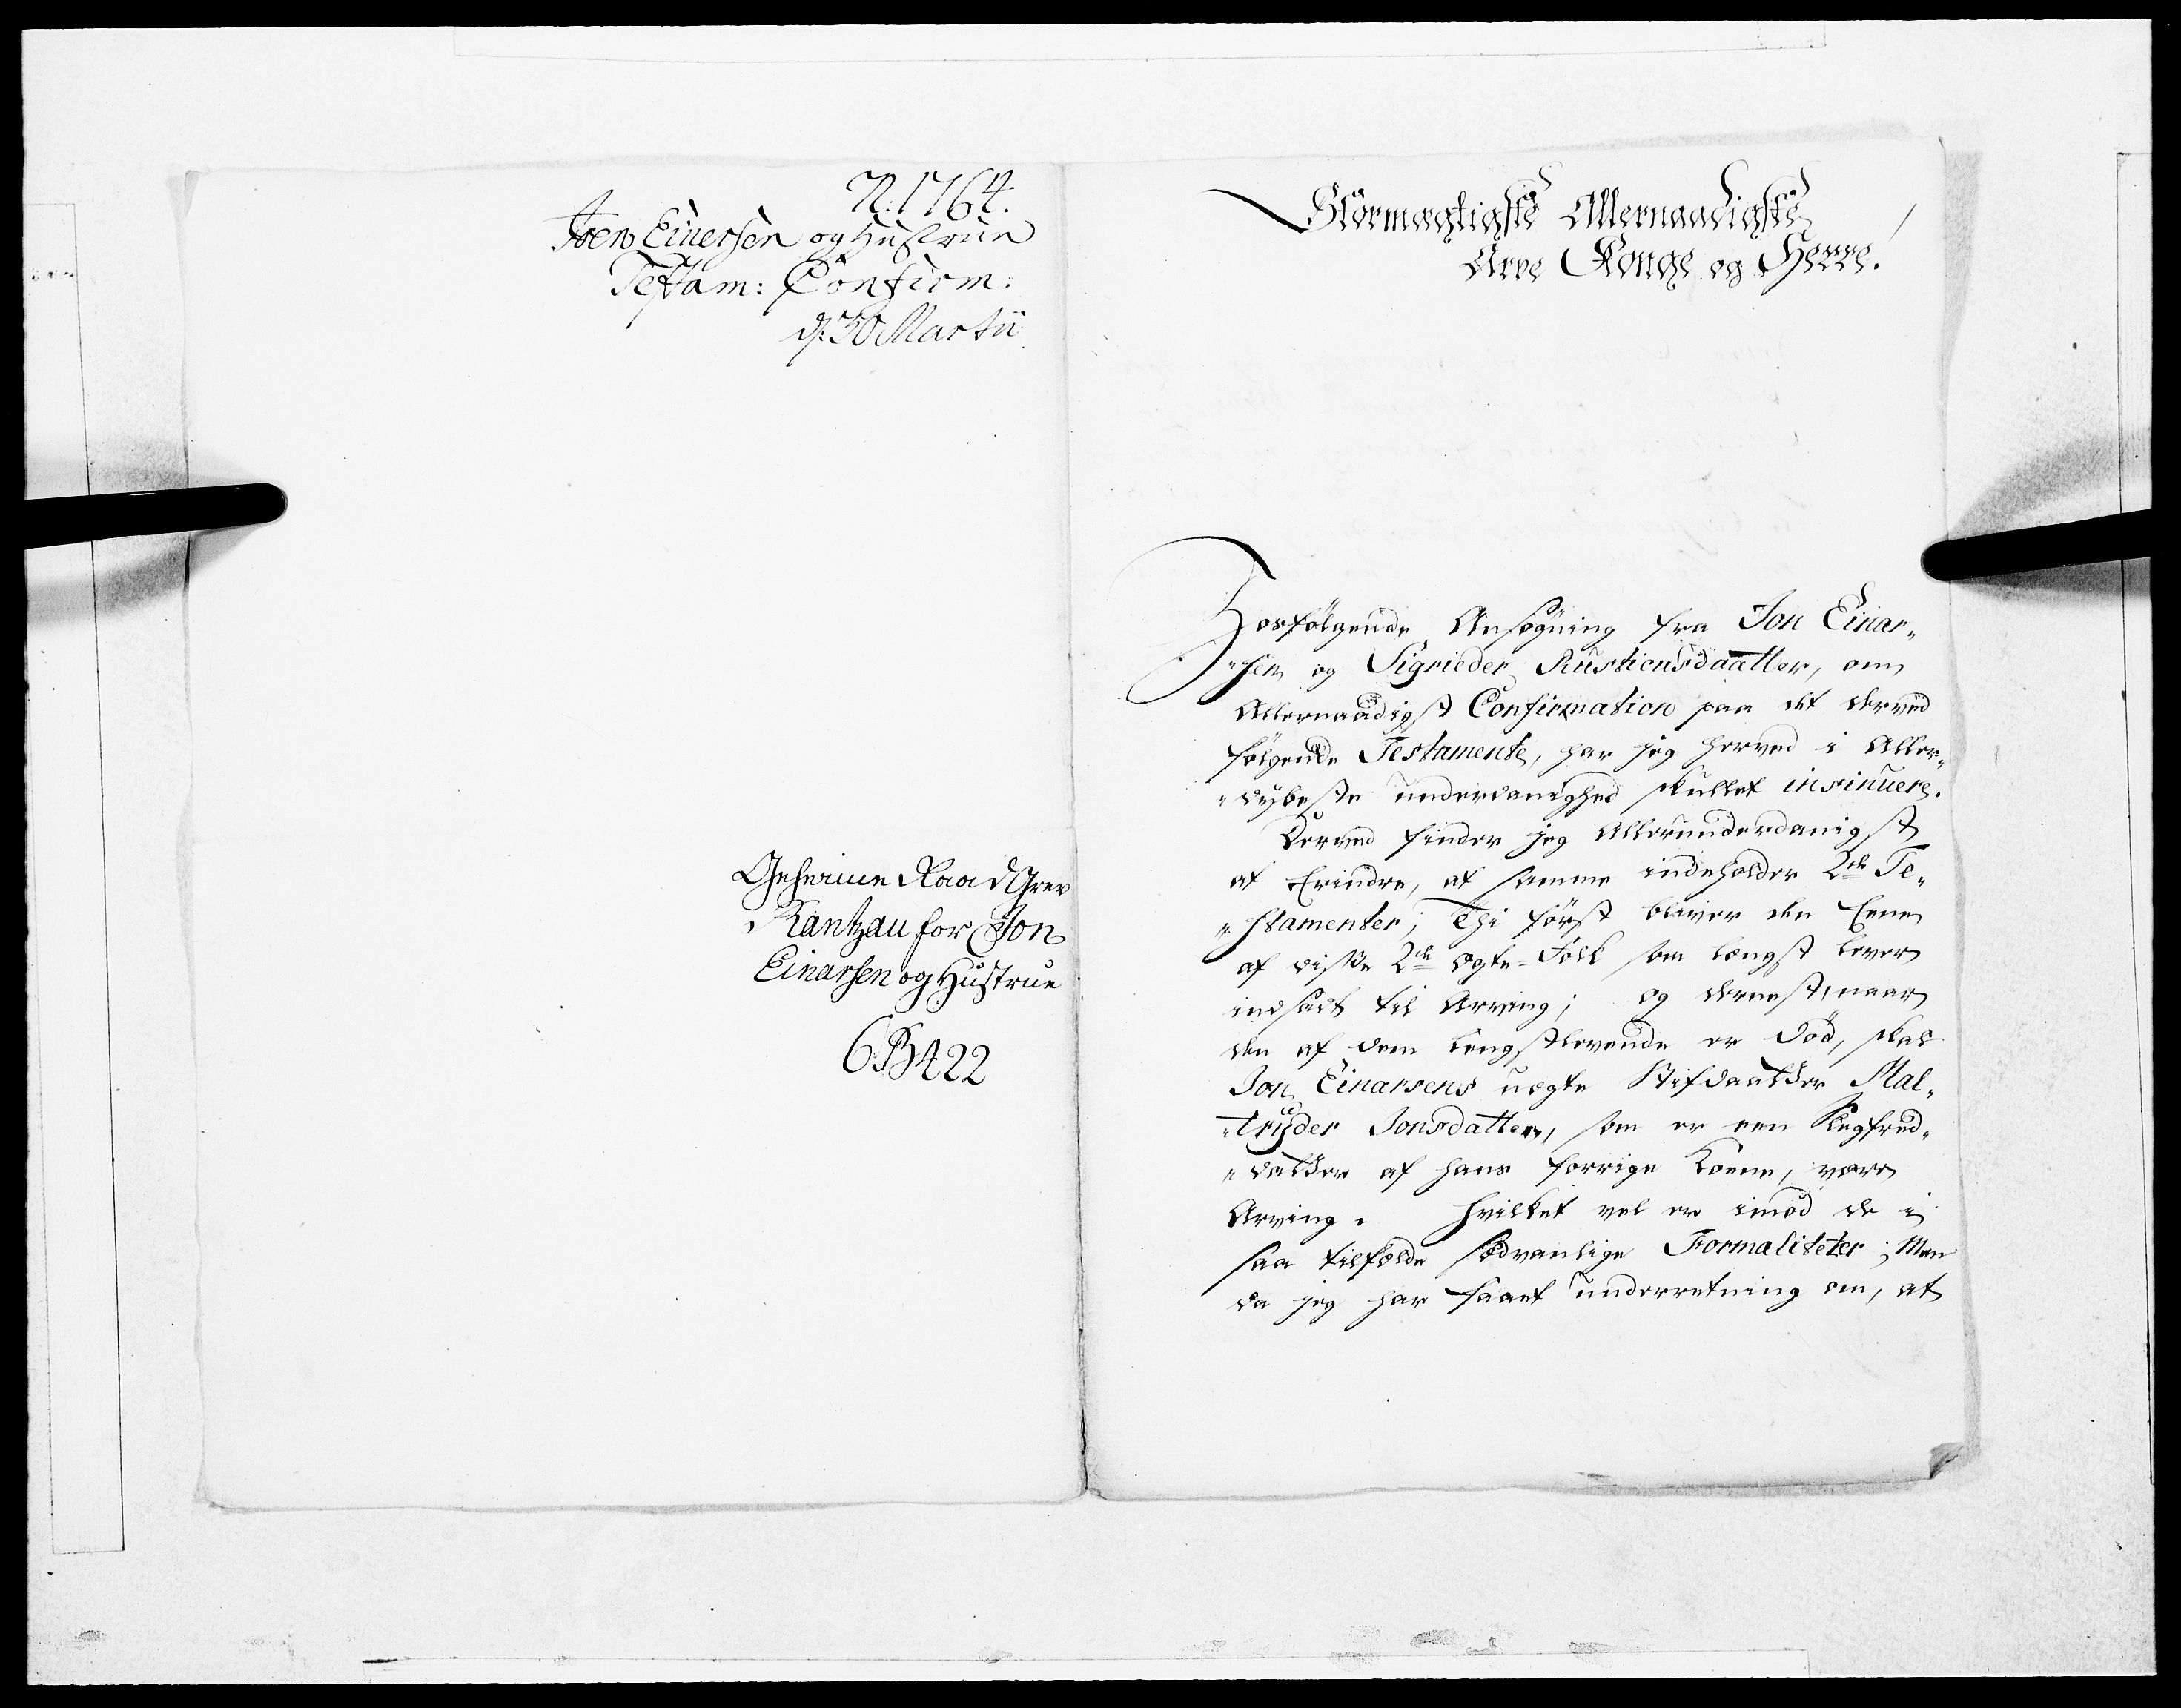 N: 1764.
Joen Einersen og Hustrue
Testam: Confirm:
d: 30 Martii
Geheime Raad Grev
Rantzau for Jon
Einarsen og Hustrue
6 B 422
Stormægtigste Allernaadigste
Arve Konge og Herre!
Hosfølgende Ansøgning fra Jon Einar„
„sen og Sigrieder Rustiensdaatter, om
Allernaadigst Confirmation paa det derved
følgende Testamente, har jeg herved i Aller„
„dybeste underdanighed skullet insinuere.
Derved finder jeg Allerunderdanigst
at Erindre, at samme indeholder 2de Te„
„stamenter; Thi først bliver den Eene
af disse 2de Ægte-Folk som længst lever
indsatt til Arving; og dernest, naar
den af dem længstlevende er død, skal
Jon Einarsens uægte Stifdaatter Mal„
„tryder Jonsdatter, som er een Slegfred„
„datter af hans forrige Kone, være
Arving. Hvilket vel er imod de i
saa tilfælde sædvanlige Formaliteter; Men
da jeg har faaet underretning om, at